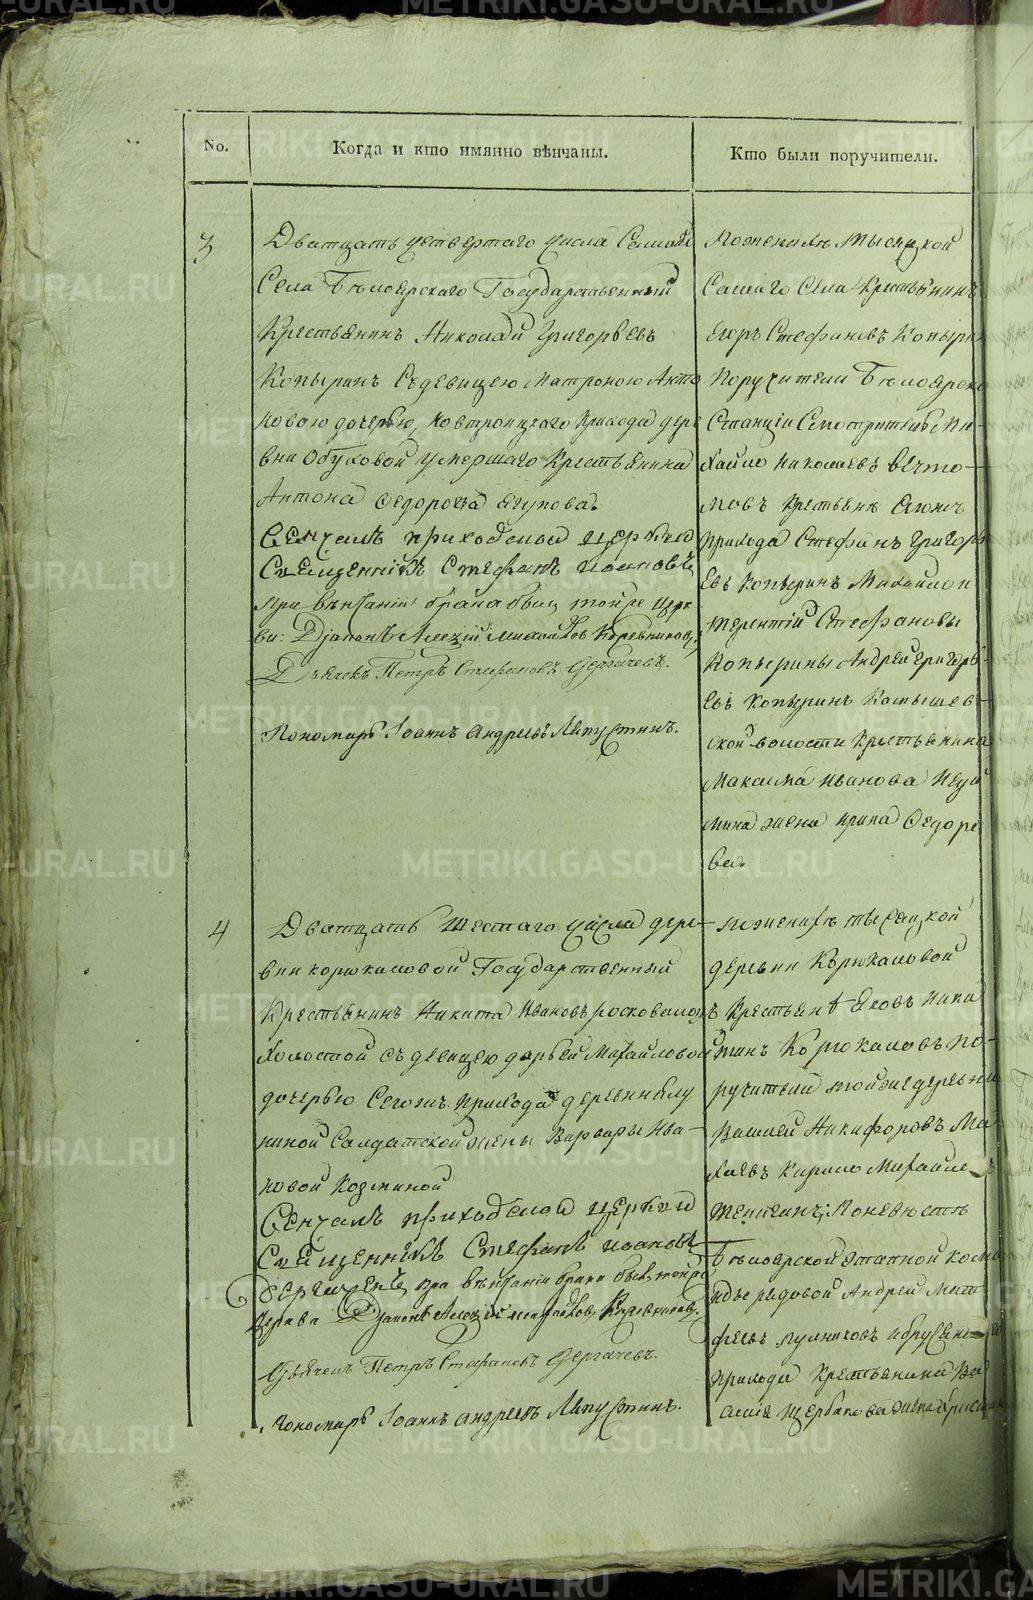 No.
Когда и кто имянно вѣнчаны.
Кто были поручители.
3
Дватцать четвертаго числа Самаго
Села Бѣлоярскаго Государственный
Крестьянинъ Николай Григорьевъ
Копыринъ Съ девицею Матроною Анто
новою дочерью, Новтроицкаго Прихода дере
вни Обуховой умершаго Крестьянина
Антона Федорова
Венчалъ приходской церкви
Священникъ Стефанъ Иоанновъ
при вѣнчаніи брака были тойже церк
ви: Дьяконъ Алексій Михайловъ Коровниковъ,
Дьячекъ Петръ Стефановъ Дергачевъ.
Пономарь Іоаннъ Андреевъ Ляпустинъ.
По женихѣ тысяцкой
Самаго Села Крестьянинъ
Егоръ Стефановъ Копырин
Поручители Бѣлоярско
Станціи Смотритель Ми-
хайло Николаевъ
Крестьяне Сегожъ
прихода Стефанъ Григорь
евъ Копыринъ Михайло и
терентій Стефановы
Копырины Андрей Григорь-
евъ Копыринъ Камышев-
ской волости Крестьянина
Максима Иванова Неуй
мина жена Ирина Федоро
ва.
4
Дватцать Шестаго числа дере-
вни корюкаловой Государственный
Крестьянинъ Никита Ивановъ
Холостой Съ девицею дарьей Михайловой
дочерью Сегожъ Прихода деревни
Салдатской жены Варвары Ива-
новой Козминой
Венчалъ приходской церкви
Священникъ Стефанъ Иоанновъ
при вѣнчаніи брака были тойже
Церкви Дьяконъ Алексій Михайловъ Коровниковъ,
Дьячекъ Петръ Стефановъ Дергачевъ.
пономарь Іоаннъ Андреевъ Ляпустинъ.
по женихѣ тысяцкой
деревни Корюкаловой
Крестьянъ Яковъ Ники
тинъ Корюкаловъ По-
ручители тойже деревни
Василей Никифоровъ Ма-
Кирило Михайле
По невѣстѣ
Бѣлоярской Этапной кома
нды рядовой Андрей Мат
феевъ
прихода Крестьянина Ва
силія Щербакова жена